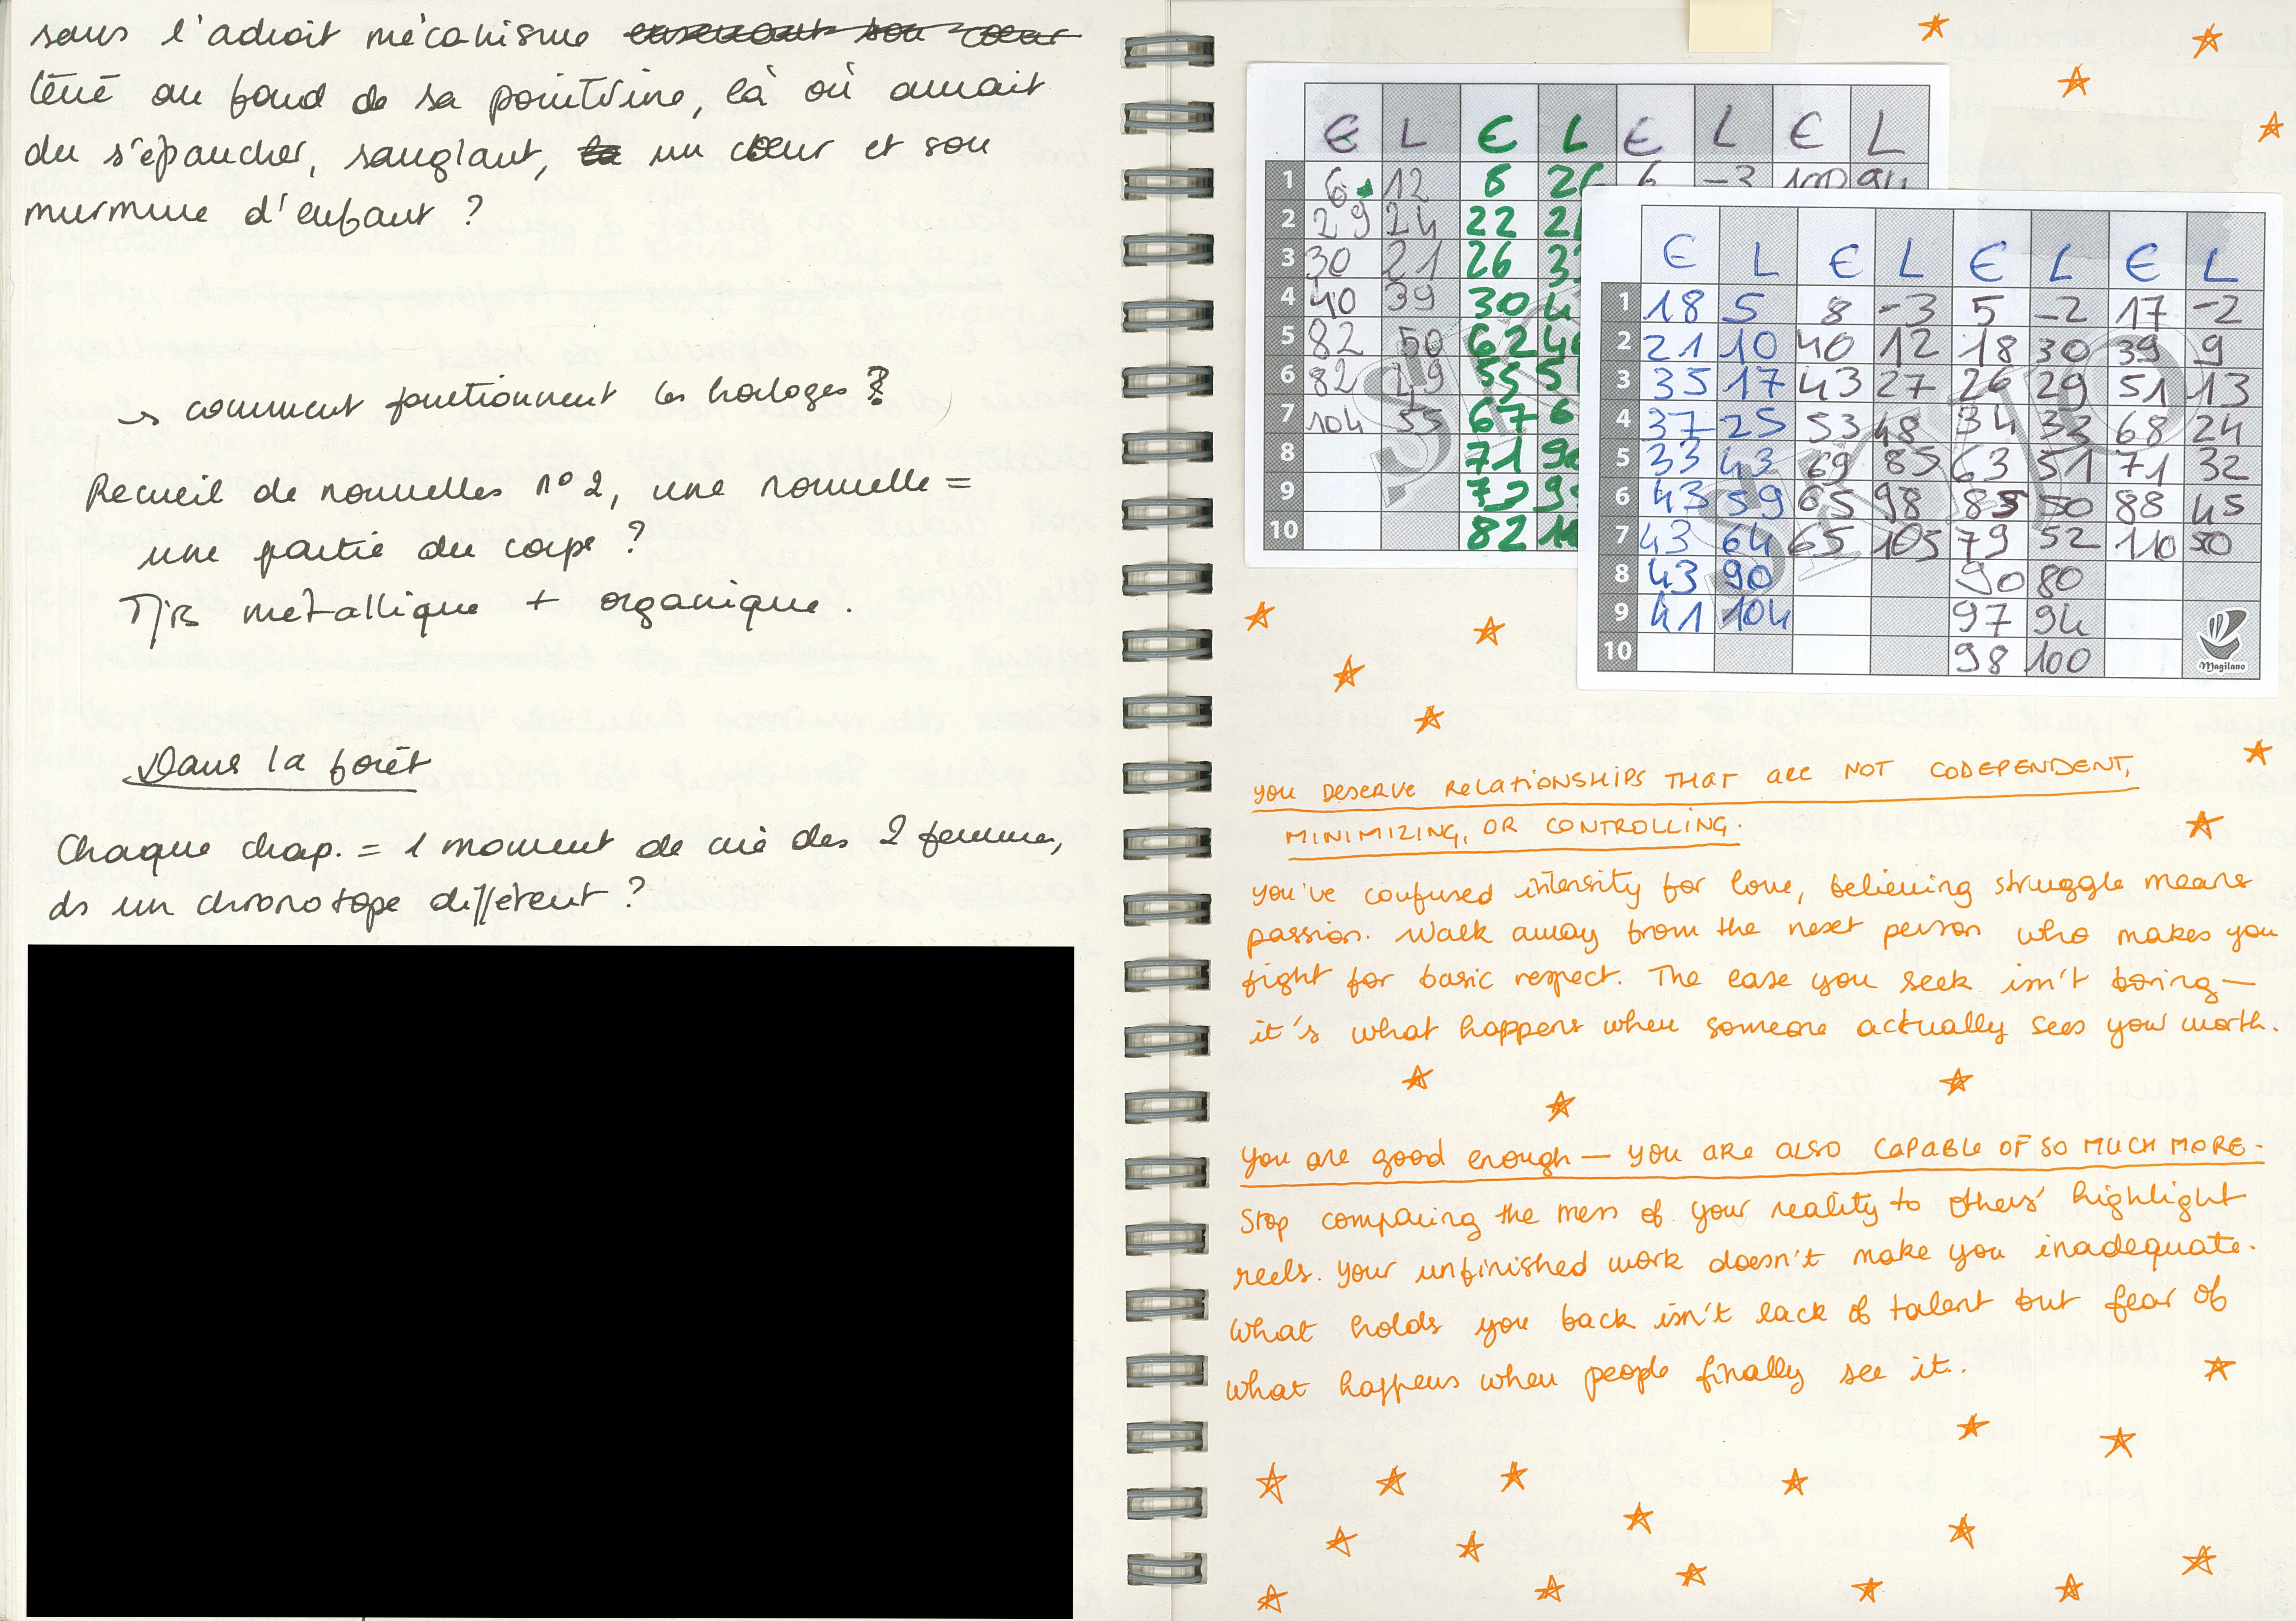 sous l'adroit mécanisme
au fond de sa poitrine, là où aurait
du s'épancher, sanglant, un cœur et son
murmure d'enfant ?
→ comment fonctionnent les horloges ?
Recueil de nouvelles n° 2, une nouvelle =
une partie du corps ?
Tjrs métallique + organique.
Dans la forêt
Chaque chap. = 1 moment de vie des 2 femmes,
ds un chronotope différent ?
€ L € L € L € L
1 6 12 8 6 -3 100 94
2 29 24 22
3 30 21 26
4 40 39 30
5 82 50 62
6 82 49 55
7 104 55 67
8 71
9
10 82
SKYJO
€ L € L € L € L
1 18 5 8 -3 5 -2 17 -2
2 21 10 40 12 18 30 39 9
3 35 17 43 27 26 29 51 13
4 37 25 53 48 34 33 68 24
5 33 43 69 85 63 51 71 32
6 43 59 65 98 85 50 88 45
7 43 64 65 105 79 52 110 50
8 43 90 90 80
9 41 104 97 94
10 98 100
SKYJO
Magilano
YOU DESERVE RELATIONSHIPS THAT ARE NOT CODEPENDENT,
MINIMIZING, OR CONTROLLING.
You've confused intensity for love, believing struggle means
passion. Walk away from the next person who makes you
fight for basic respect. The ease you seek isn't boring—
it's what happens when someone actually sees your worth.
You are good enough — YOU ARE ALSO CAPABLE OF SO MUCH MORE.
Stop comparing the mess of your reality to others' highlight
reels. Your unfinished work doesn't make you inadequate.
What holds you back isn't lack of talent but fear of
what happens when people finally see it.